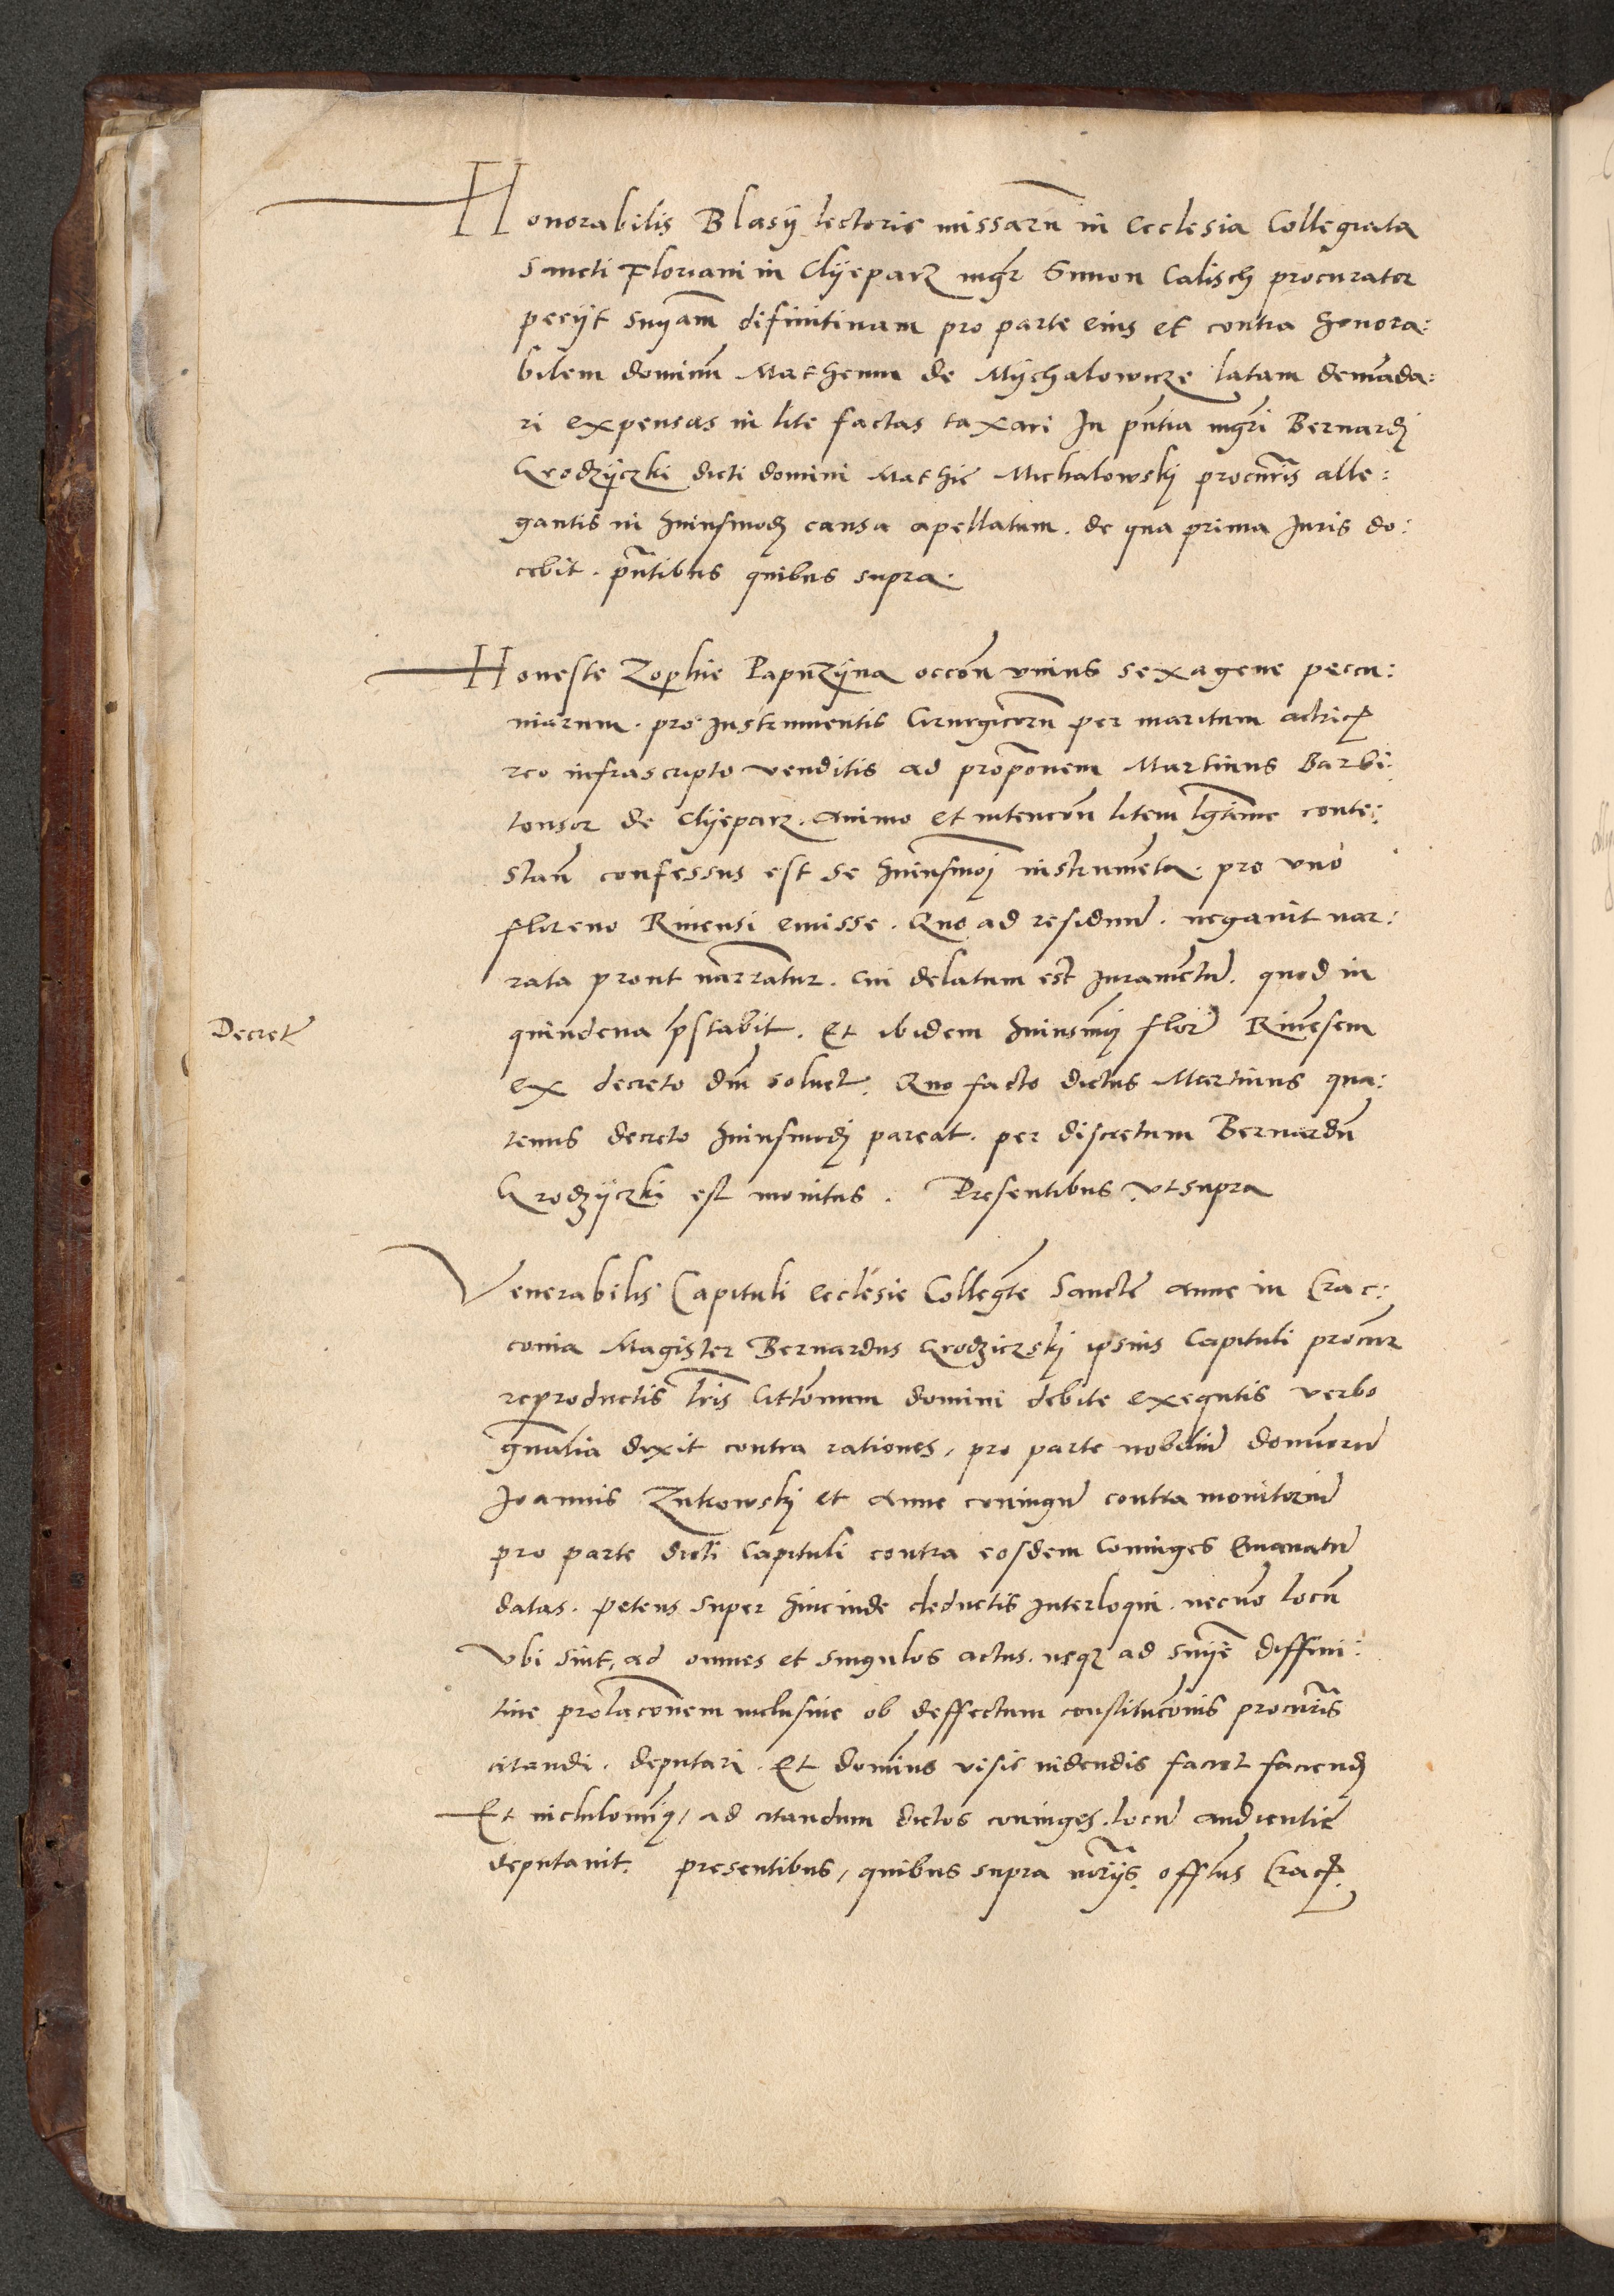 Honorabilis Blasÿ lectoris missarũ in Ecclesia Collegiata
Sancti Floriani in Clÿeparz mgr̃ Simon Calisch procurator
petÿt snÿam̃ difinitiuam pro parte eius et contra honora:
bilem dominũ Matheum de Mÿchalowicze latam demãda:
ri expensas in lite factas taxari In pñtia mgr̃i Bernardj
Grodzÿczki dicti domini Mathie Michalowskj procur̃is alle:
gantis in huiusmodj causa apellatum. de qua prima Iuris do:
cebit. pñtibus quibus supra.
Honeste Zophie Papuzÿna occoñ vnius sexagene peccu:
niarum. pro Instrumentis Cirurgicorũ per maritum actricꝭ
reo infrascripto venditis ad propõnem Martinus Barbi:
tonsor de Clÿeparz. animo et intencoñ litem lgr̃time conte:
stañ confessus est se huiusmoj instrumẽta. pro vno
floreno Rinensi emisse. Quo ad residuũ. negauit nar:
rata prout narratur. cui delatum est Iuramẽtũ. quod in
Decretũ
quindena pr̃stabit. Et ibidem huiusmoj flor̃ Rinẽsem
ex decreto dñi soluet. Quo facto dictus Martinus qua:
tenus decreto huiusmodj pareat. per discretum Bernardũ
Grodzÿczki est monitus. Presentibus vt supra
Venerabilis Capituli ecclesie Collegte Sancte Anne in Crac:
couia Magister Bernardus Grodziczskj ipsius Capituli procur̃
reproductis lr̃is Citãtonum domini debite exequtis verbo
gñalia dixit contra rationes, pro parte nobiliũ dominorũ
Joannis Zukowskj et Anne coniugũ contra monitoriũ
pro parte dicti Capituli contra eosdem Coniuges Emanatũ
datas. petens super hincinde deductis Interloqui. necnõ locũ
Vbi sint, ad omnes et singulos actus. usqꝫ ad snÿe diffini:
tiue prolãconem inclusiue ob deffectum constitucõnis procur̃is
citandi. deputari. Et dominus visis uidendis faciet faciendj
Et nichilominꝰ, ad citandum dictos coniuges. locũ audientie
deputauit. presentibus, quibus supra nor̃ÿs. offtus Cracꝭ.